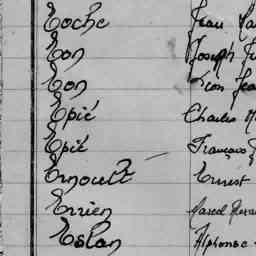 Eoche Jean
Eon Joseph
Eon Jean
Epié Charles M
Epié François
Ernoult Ernest
Errien Marcel
Eslan Alphonse